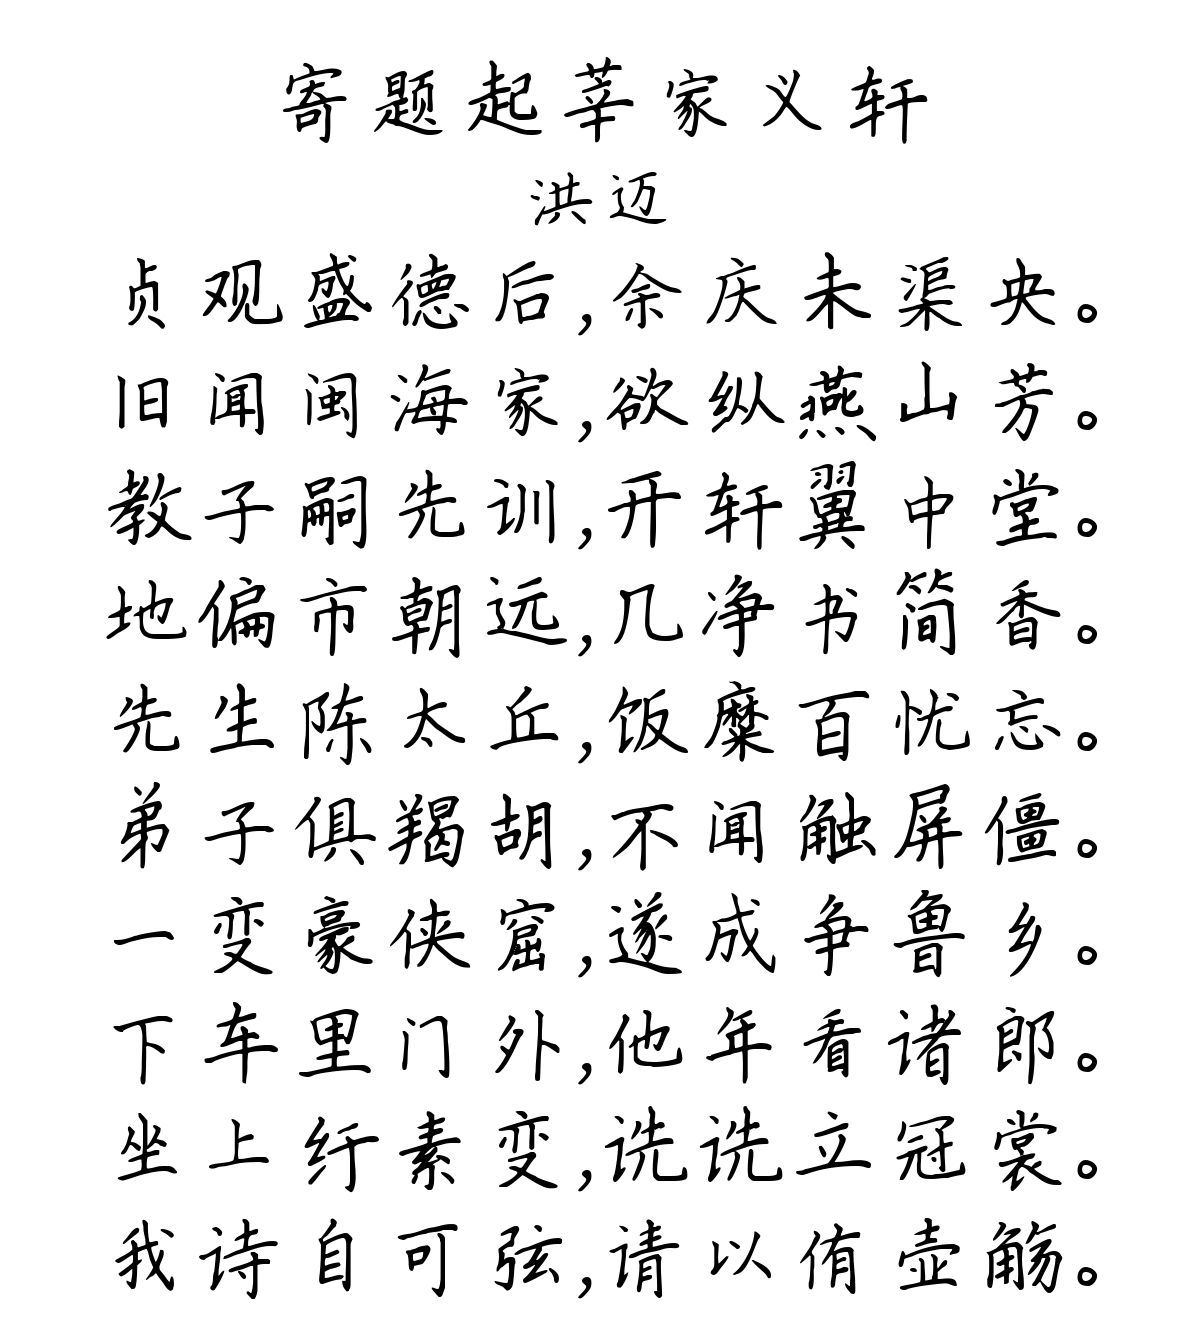 寄题起莘家义轩
洪迈
贞观盛德后,余庆未渠央。
旧闻闽海家,欲纵燕山芳。
教子嗣先训,开轩翼中堂。
地偏市朝远,几净书简香。
先生陈太丘,饭糜百忧忘。
弟子俱羯胡,不闻触屏僵。
一变豪侠窟,遂成争鲁乡。
下车里门外,他年看诸郎。
坐上纡素变,诜诜立冠裳。
我诗自可弦,请以侑壶觞。